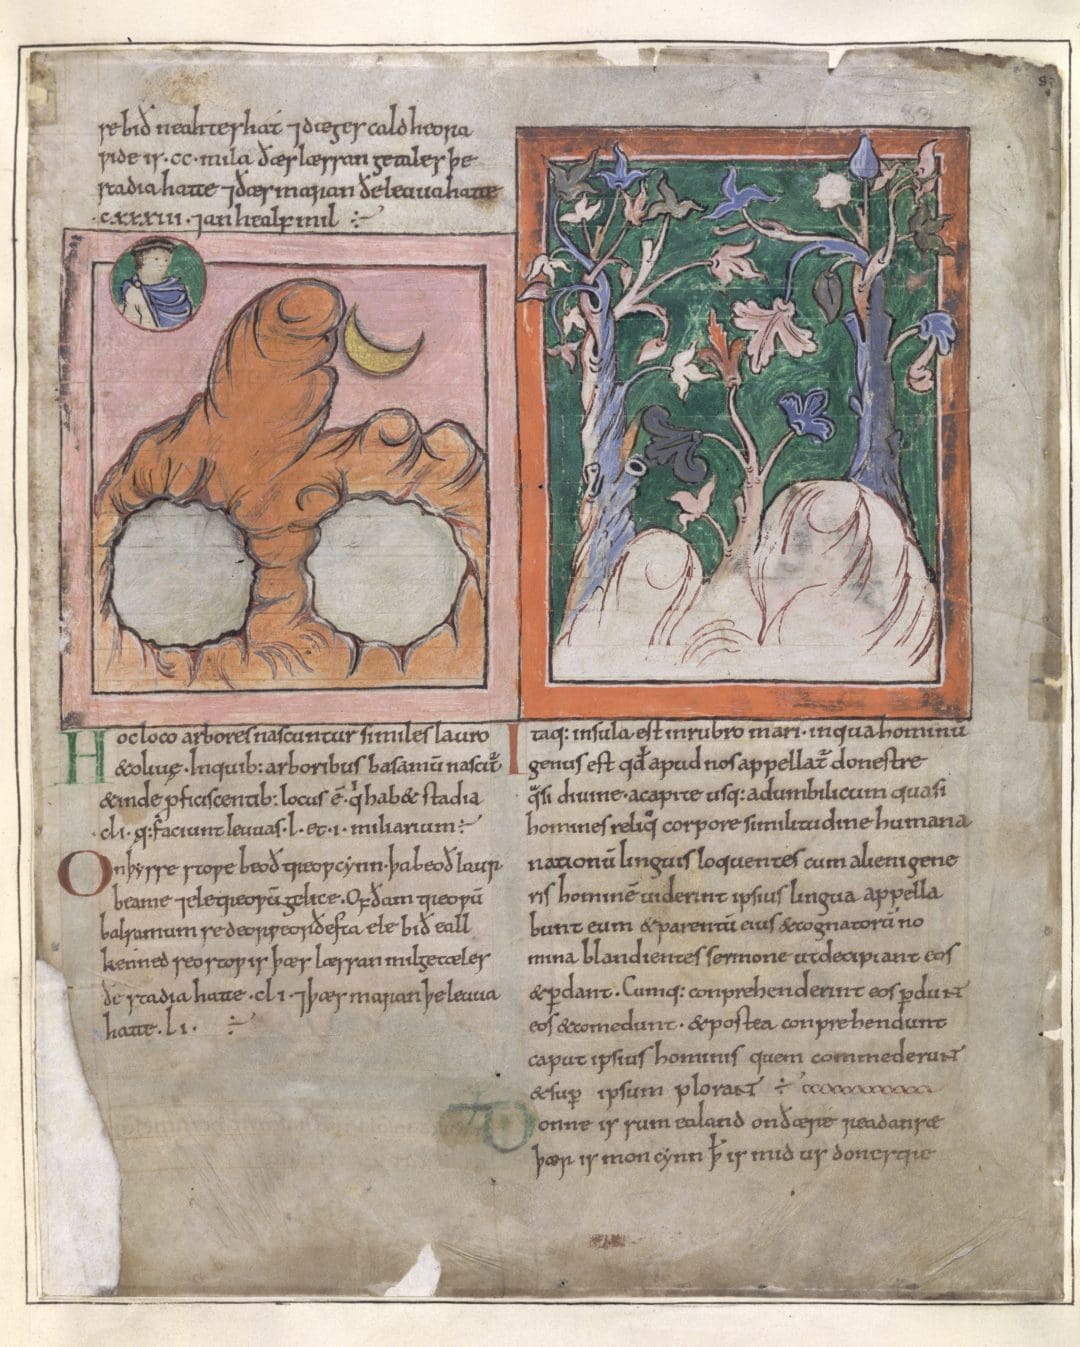 se bið neahterhat ⁊ dæger cald heora
ride is · cc · mila ðær læssan getæles þe
stadia hatte ⁊ ðær maran ðe leuua hatte
· cxxxiii · ⁊ an healf mil ÷
Hoc loco arbores nascuntur similes lauro
& oliuę · In quib: arboribus basamū nascit̃
& inde ꝓficiscentib: locus ē · q hab& stadia
· cli · q: faciunt leuuas · l · et · i · miliarium ÷
On þysse stope beoð treopcynn · þa beoð laur
beame ⁊ eletreopū gelice · Of ðam treopū
balsamum
ele bið eall
kenned seo stop is þær læssan milgetæles
ðe stadia hatte · cli · ⁊ þær maran þe leuua
hatte · li · ÷
Itaq: insula est in rubro mari · in qua hominū
genus est qđ apud nos appellat̃ donestre
q̃si diuine · a capite usq: ad umbilicum quasi
homines reliq̊ corpore similitudine humana
nationū linguis loquentes cum alieni gene
ris hominē uiderint ipsius lingua appella
bunt eum & parentū eius & cognatorū no
mina blandientes sermone ut decipiant eos
& ꝑdant · Cumq: conprehenderint eos ꝑdunt
eos & comedunt · & postea conprehendunt
caput ipsius hominis quem commederunt
& suꝑ ipsum plorant ÷
Ðonne is sum ealand on ðære readan sæ
þær is moncynn ꝥ is mid us donestre